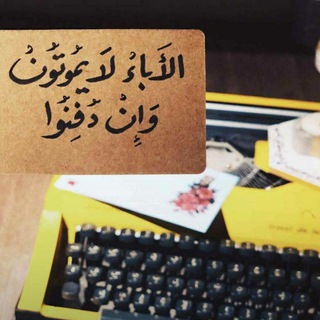 الأَباءُ لَا يَمُوتُونُ
وَإِنْ دُفِنُوا